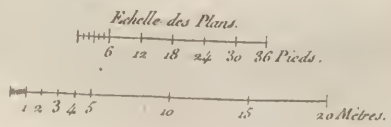 Echelle des Plans.
6 12 18 24 30 36 Pieds.
1 2 3 4 5 10 15 20 Mètres.